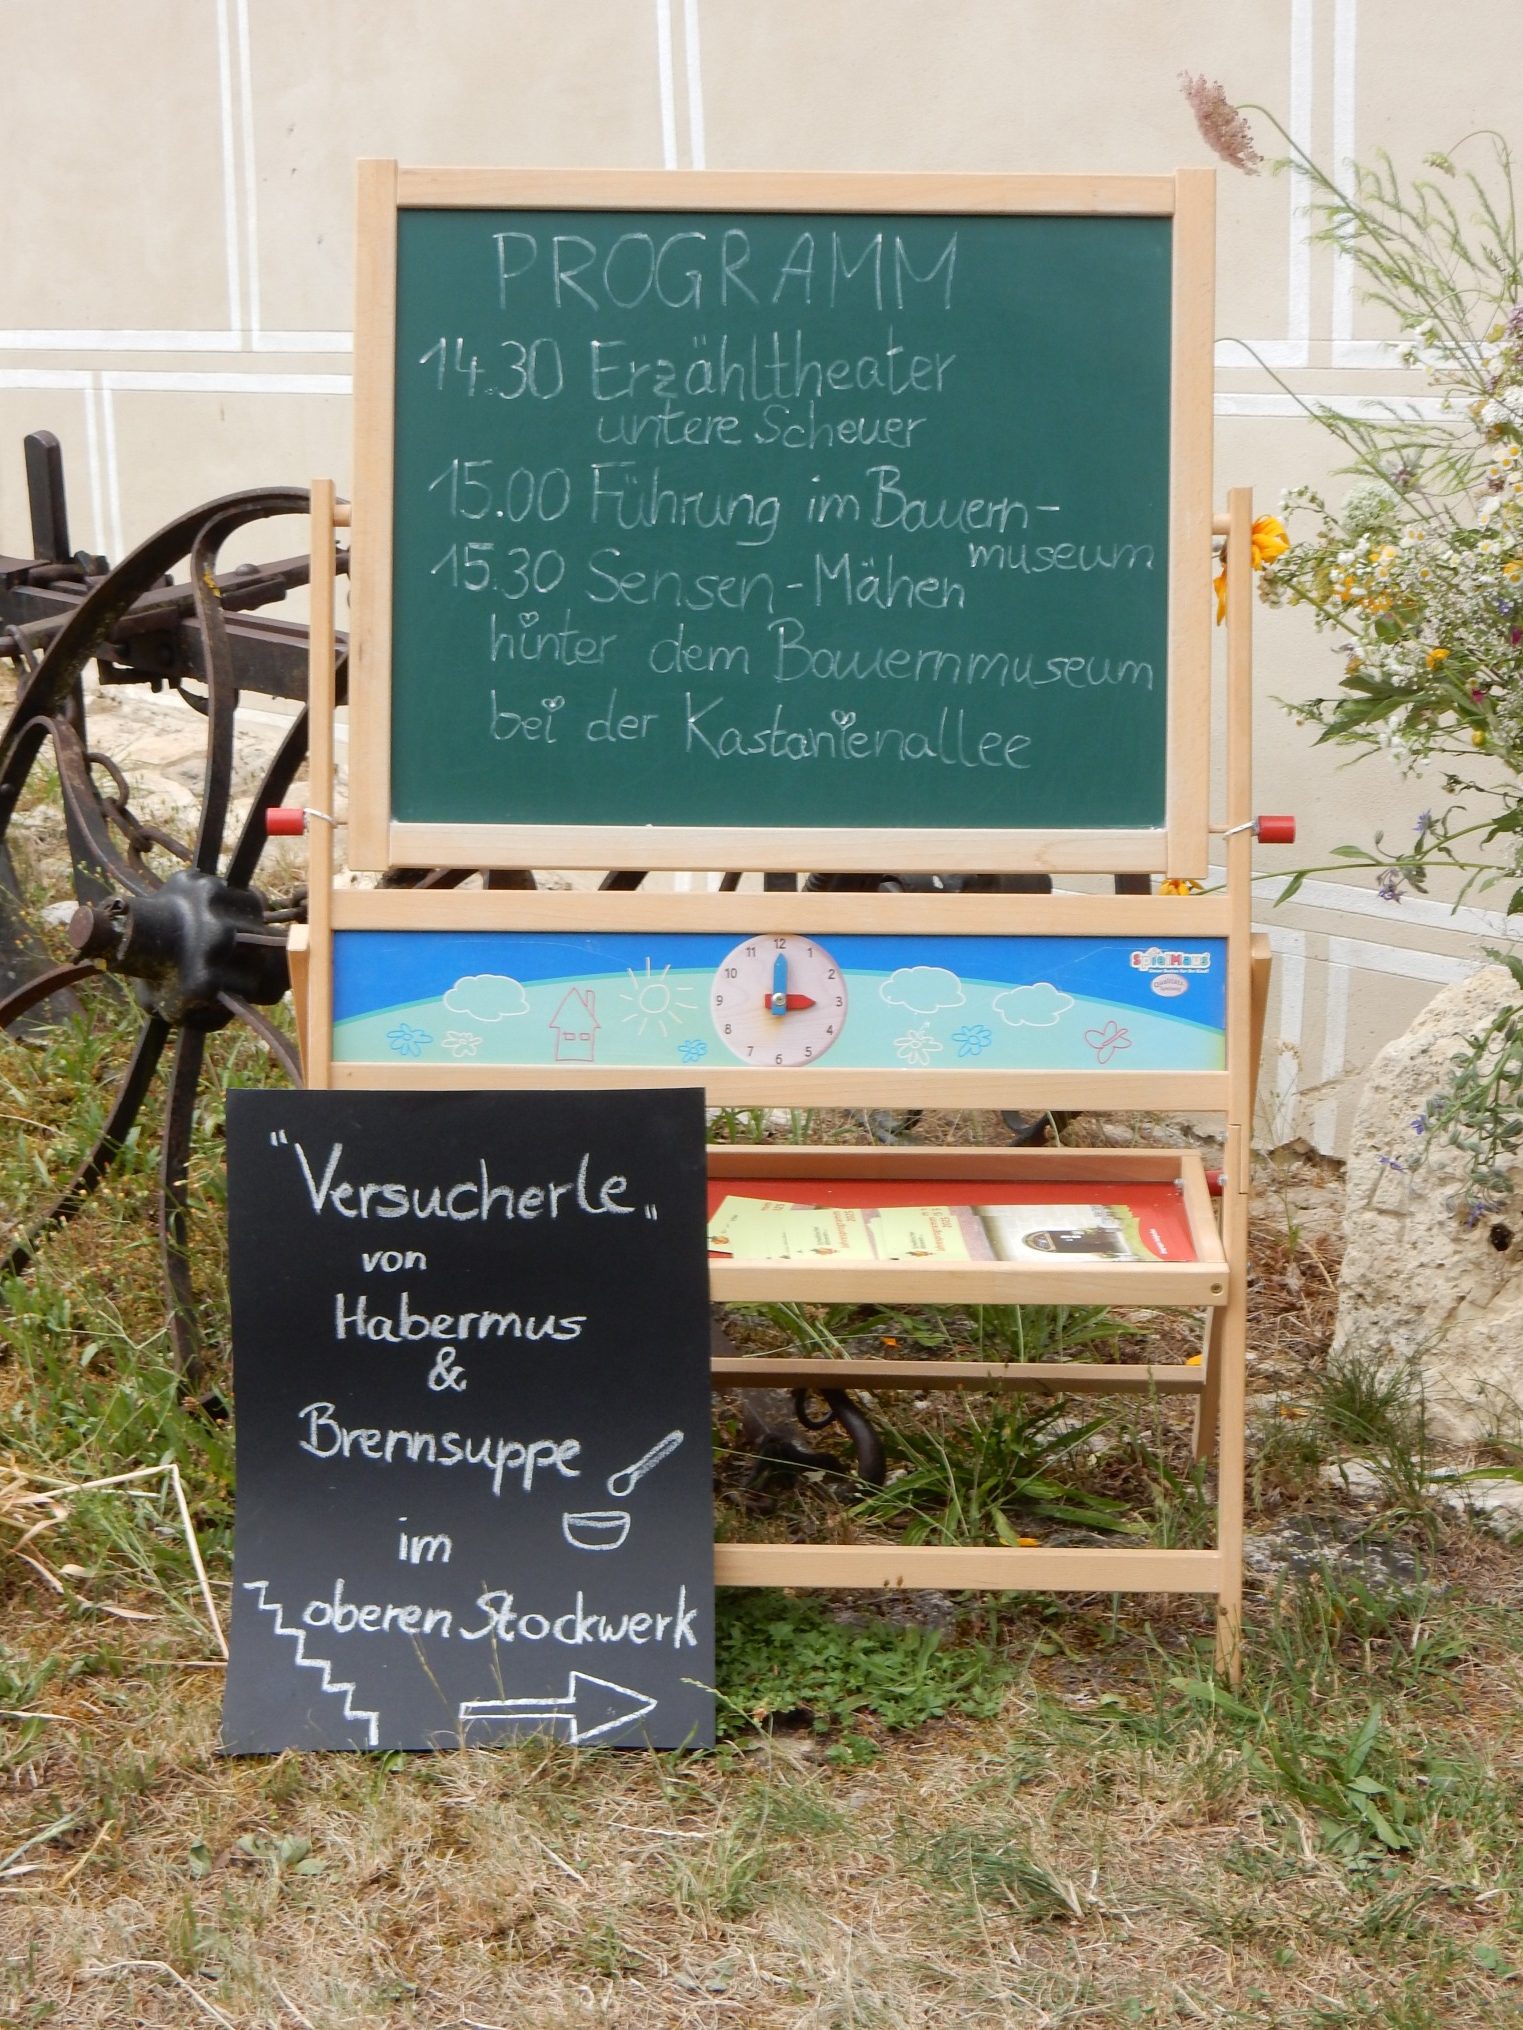 PROGRAMM
14.30 Erzähltheater
untere Scheuer
15.00 Führung im Bauern-
museum
15.30 Sensen-Mähen
hinter dem Bauernmuseum
bei der Kastanienallee
11 12 1
10 2
9 3
8 4
7 6 5
SpielMaus
"Versucherle"
von
Habermus
&
Brennsuppe
im
oberen Stockwerk